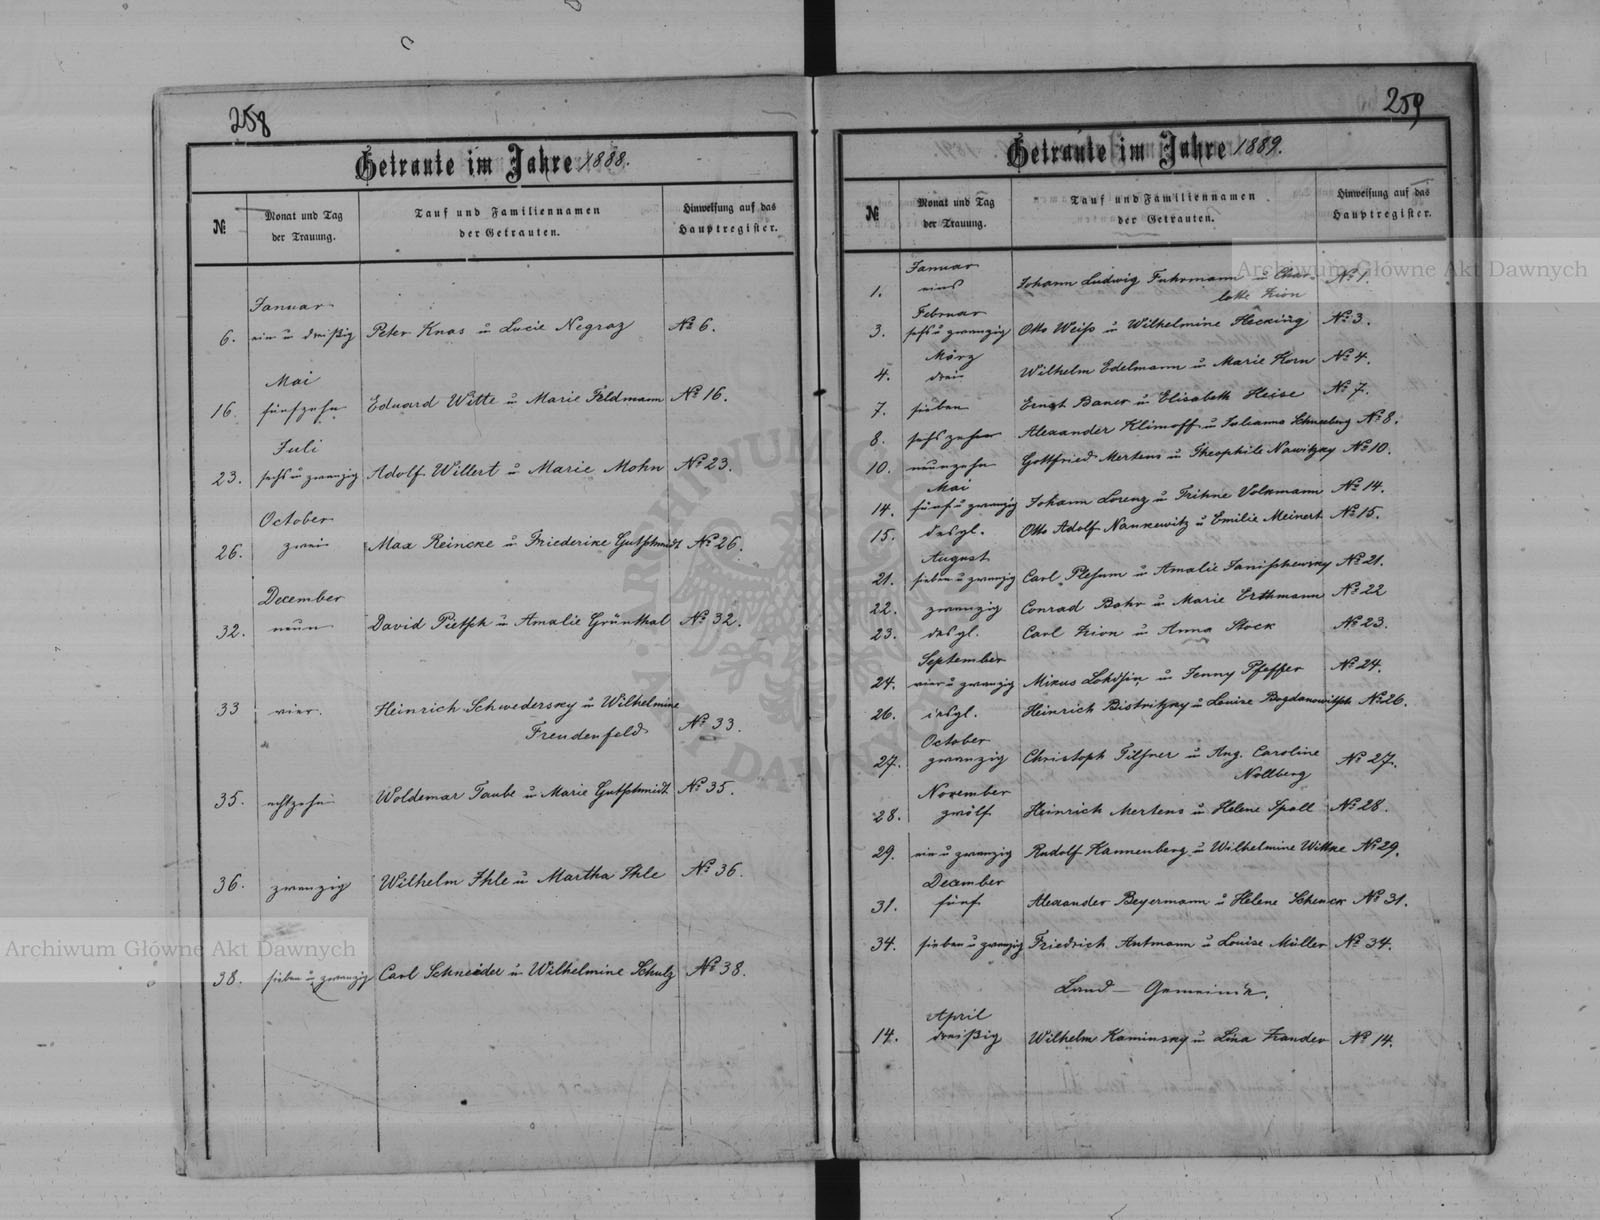 258
Getraute im Jahre 1888.
№
Monat und Tag
der Trauung.
Tauf und Familiennamen
der Getrauten.
Hinweisung auf das
Hauptregister.
Januar
6. ein u dreißig Peter Knas u Lucie Negraz № 6.
Mai
16. fünfzehn Eduard Witte u Marie Feldmann № 16.
Juli
23. sechs u zwanzig Adolf Willert u Marie Mohn № 23.
October
26. zwei Max Reincke u Friederike Gutschmidt № 26.
December
32. neun David Pietsch u Amalie Grünthal № 32.
33 vier. Heinrich Schwedersky u Wilhelmine
Freudenfeld № 33.
35. achtzehn Woldemar Taube u Marie Gutschmidt № 35.
36. zwanzig Wilhelm Ihle u Martha Ihle № 36.
38. sieben u zwanzig Carl Schneider u Wilhelmine Schulz № 38.
259
Getraute im Jahre 1889.
№
Monat und Tag
der Trauung.
Tauf und Familiennamen
der Getrauten.
Hinweisung auf das
Hauptregister.
Januar
1. eins Johann Ludwig Fuhrmann u Char-
lotte Zion № 1.
Februar
3. sechs u zwanzig Otto Weiss u Wilhelmine Hecking № 3.
März
4. drei Wilhelm Edelmann u Marie Korn № 4.
7. sieben Ernst Baner u Elisabeth Heise № 7.
8. sechszehn Alexander Klimoff u Julianna Schneeberg № 8.
10. neunzehn Gottfried Mertens u Theophile Nawitzky № 10.
Mai
14. fünf u zwanzig Johann Lorenz u Trihne Volkmann № 14.
15. desgl. Otto Adolf Nankewitz u Emilie Meinert № 15.
August
21. sieben u zwanzig Carl Plesum u Amalie Janischewsky № 21.
22. zwanzig Conrad Bahr u Marie Erthmann № 22
23. desgl. Carl Zion u Anna Stock № 23.
September
24. vier u zwanzig Mikus Lohdsin u Jenny Pfeffer № 24.
26. idsgl. Heinrich Bistritzky u Louise Bogdanowitsch № 26.
October
27. zwanzig Christoph Tilsner u Ang. Caroline
Nollberg № 27.
November
28. zwölf Heinrich Mertens u Helene Spall № 28.
29. ein u zwanzig Rudolf Kannenberg u Wilhelmine Wittke № 29.
December
31. fünf Alexander Beyermann u Helene Schenck № 31.
34. sieben u zwanzig Friedrich Autmann u Louise Müller № 34.
Land - Gemeinde.
April
14. dreißig Wilhelm Kaminsky u Lina Zander № 14.
Archiwum Główne Akt Dawnych
Archiwum Główne Akt Dawnych